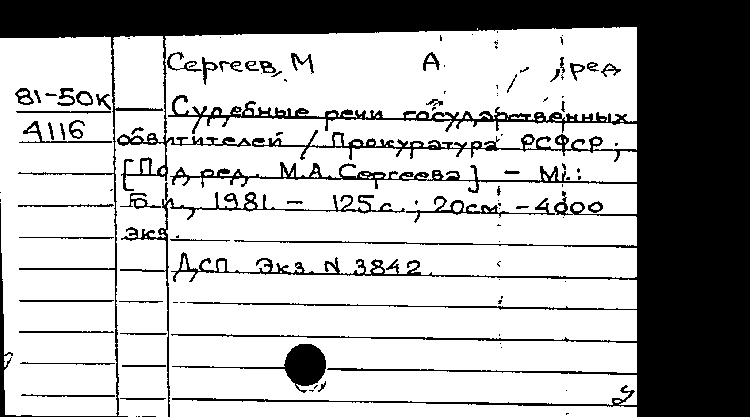 Сергеев, М А , ред
81-50к
4116
Судебные речи государственных
обвинителей / Прокуратура РСФСР ;
[Под ред. М.А. Сергеева] - М.:
Б.и., 1981. - 125 с.; 20см. - 4000
экз.
ДСП. Экз. N 3842.